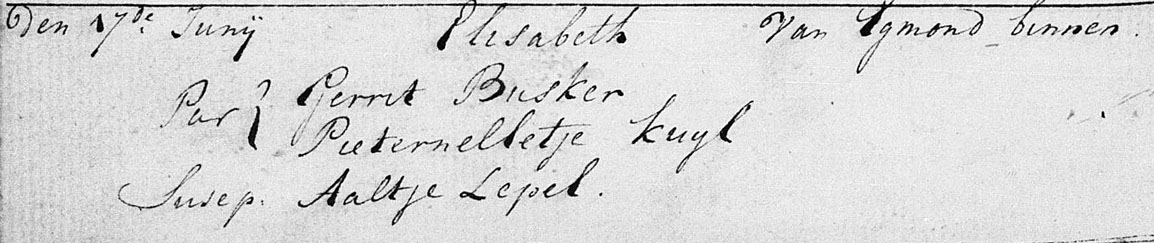 Den 17de Junij Elisabeth Van Egmond binnen.
Par } Gerrit Busker
Pieternelletje Kuyl
Susep. Aaltje Lepel.